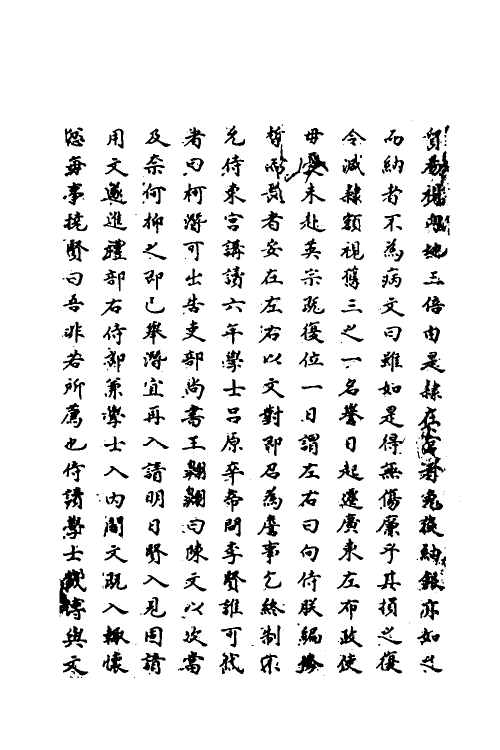 貿易視內地三倍由是隸在官者免役納銀亦如之
而納者不為病文曰雖如是得無傷廉乎其損之復
令減隸額視舊三之一名譽日起遷廣東左布政使
毋憂未赴英宗既復位一日謂左右曰向侍朕編修
皙而長者安在左右以文對即召為詹事乞終制不
允侍東宮講讀六年學士呂原卒帝問李賢誰可代
者曰柯潛可出告吏部尚書王翱翱曰陳文以次當
及奈何抑之即已舉潛宜再入請明日賢入見因請
用文遂進禮部右侍郎兼學士入內閣文既入輒懷
忿每事撓賢曰吾非若所薦也侍讀學士錢溥與文